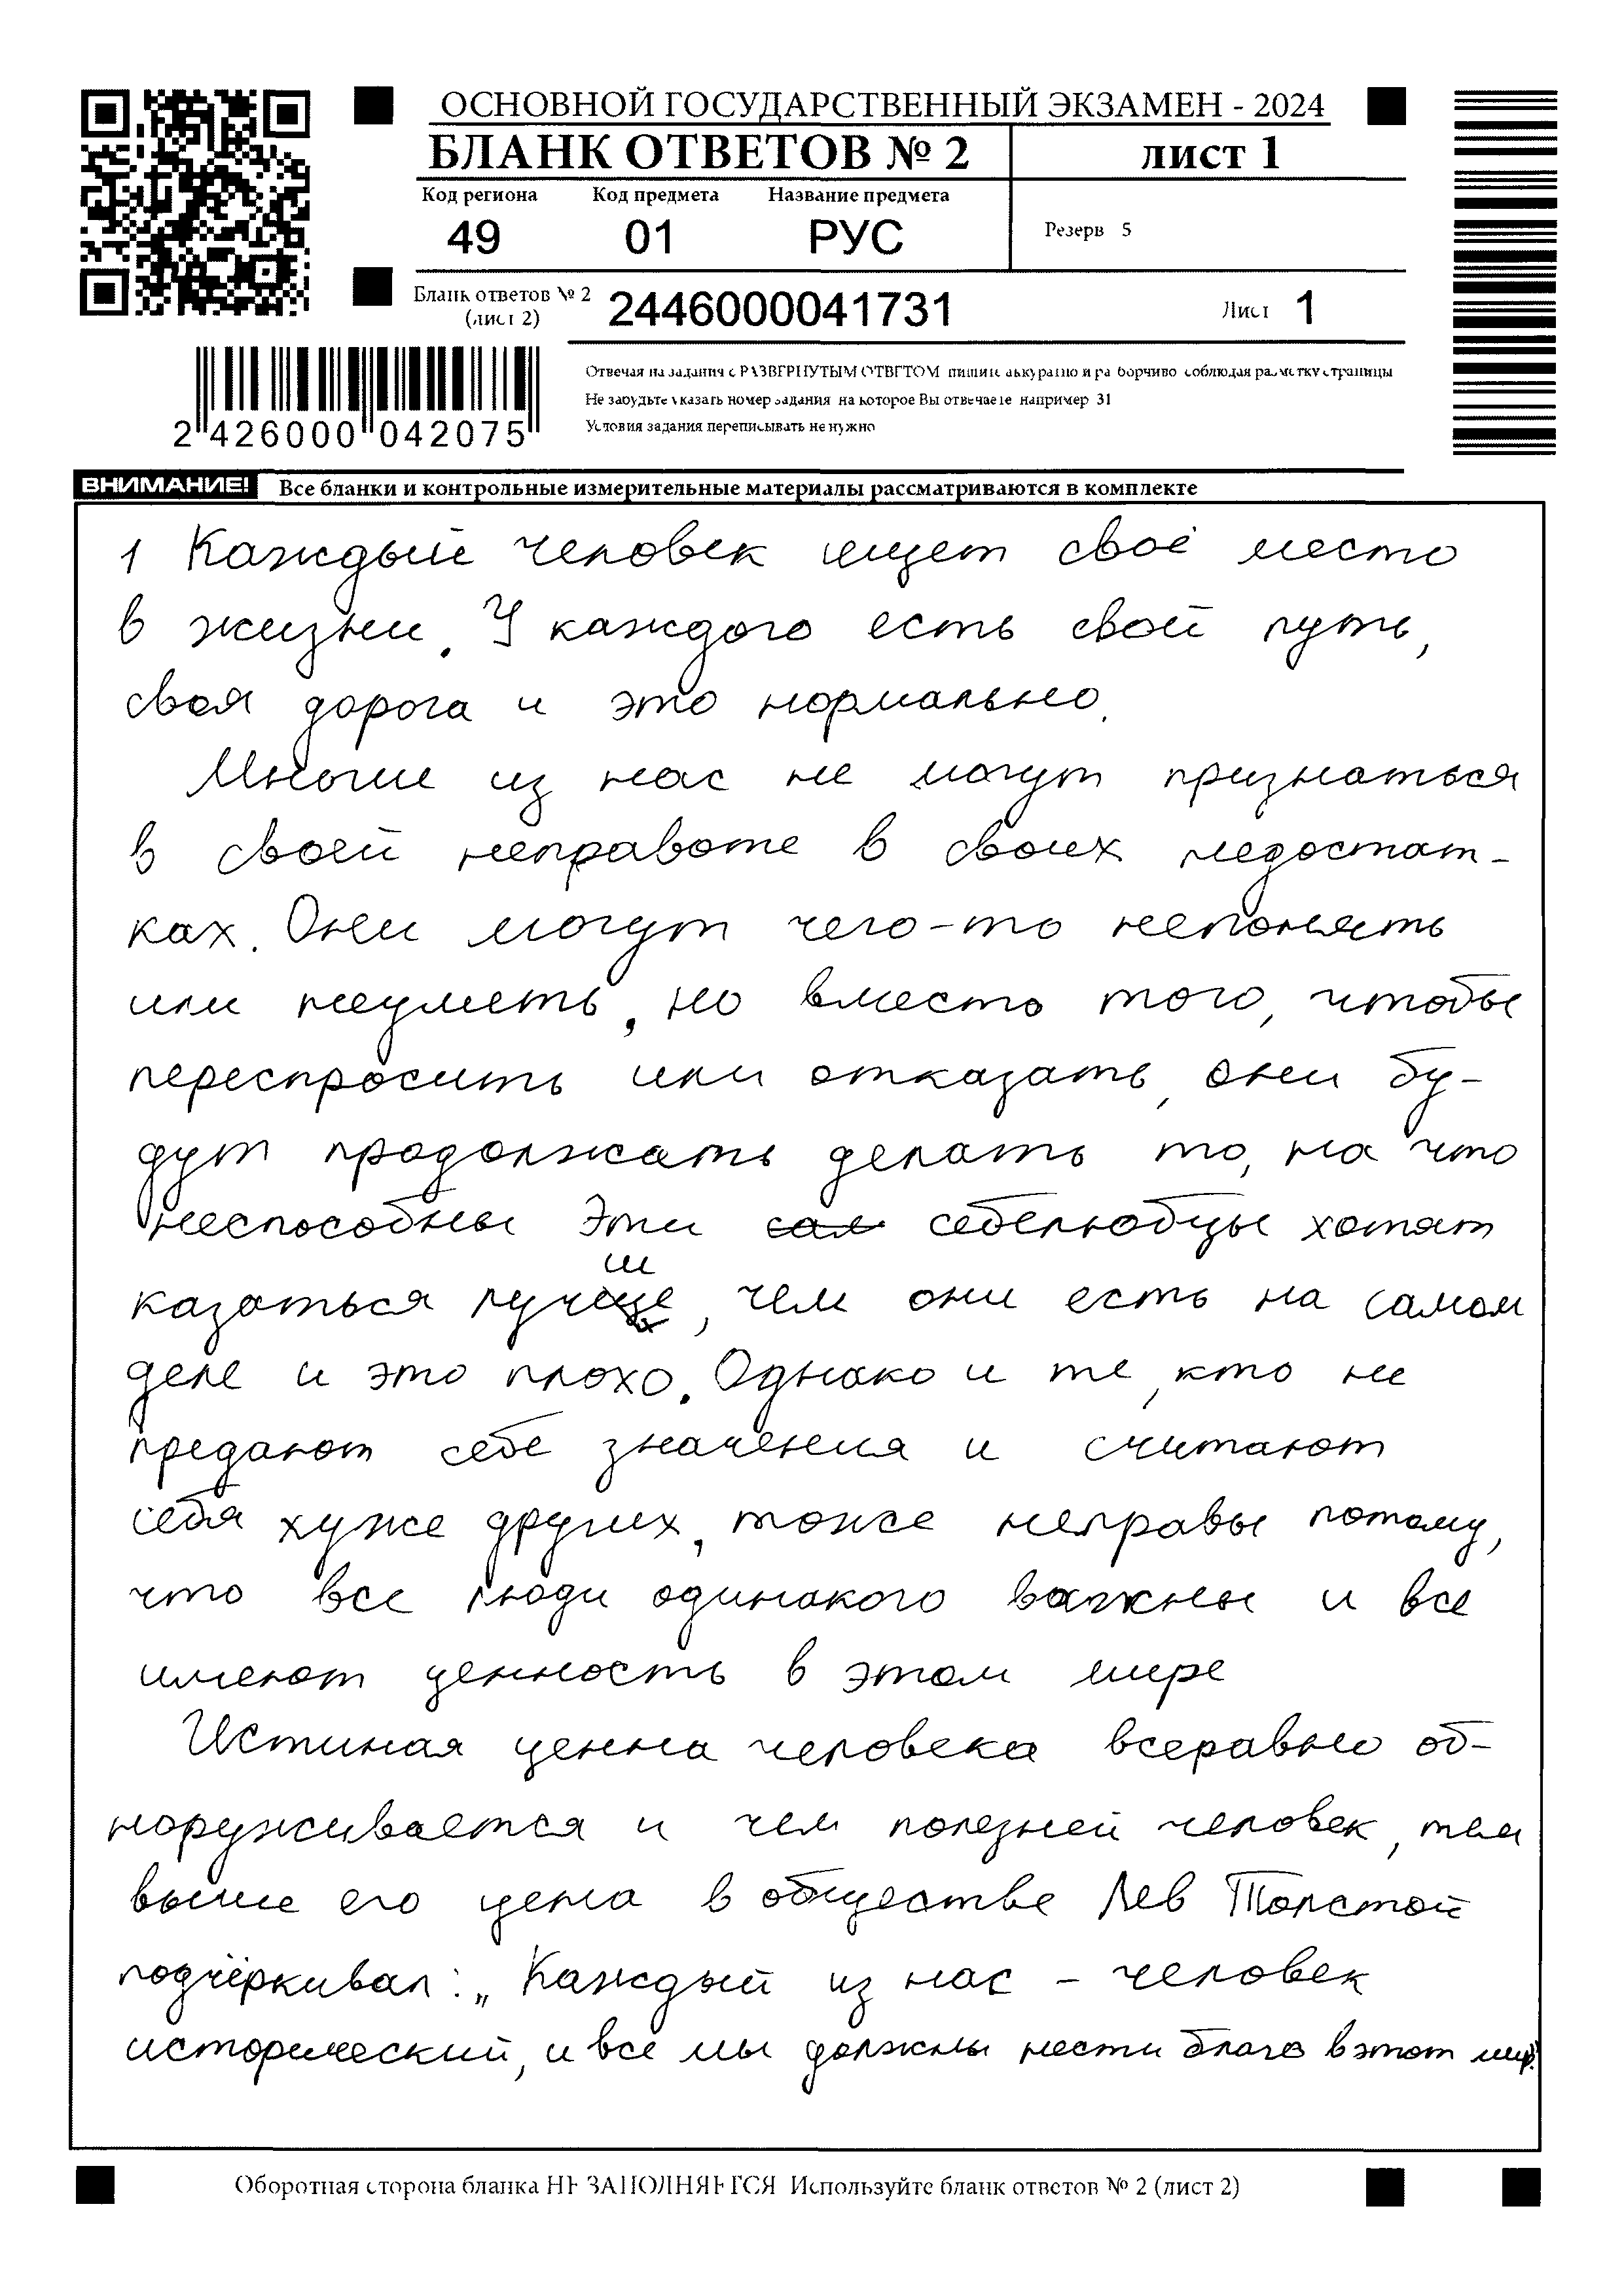 ОСНОВНОЙ ГОСУДАРСТВЕННЫЙ ЭКЗАМЕН - 2024
БЛАНК ОТВЕТОВ № 2 лист 1
Код региона Код предмета Название предмета
49 01 РУС
Резерв 5
Бланк ответов № 2
(лист 2)
2446000041731
Лист 1
Отвечая на задания с РАЗВЕРНУТЫМ ОТВЕТОМ пишите аккуратно и разборчиво соблюдая разметку страницы
Не забудьте указать номер задания на которое Вы отвечаете например 31
Условия задания переписывать не нужно
2 426000 042075
ВНИМАНИЕ! Все бланки и контрольные измерительные материалы рассматриваются в комплекте
1 Каждый человек ищет своё место
в жизни. У каждого есть свой путь,
своя дорога и это нормально.
Многие из нас не могут признаться
в своей неправоте в своих недостат-
ках. Они могут чего-то непонять
или неуметь, но вместо того, чтобы
переспросить или отказать, они бу-
дут продолжать делать то, на что
неспособны Эти сам себелюбцы хотят
казаться лучше, чем они есть на самом
деле и это плохо. Однако и те, кто не
предают себе значения и считают
себя хуже других, тоже неправы потому,
что все люди одинакого важны и все
имеют ценность в этом мире
Истиная ценна человека всеравно об-
норуживается и чем полезней человек, тем
выше его цена в обществе Лев Толстой
подчёркивал: „Каждый из нас - человек
исторический, и все мы должны нести благо в этот мир."
Оборотная сторона бланка НЕ ЗАПОЛНЯЕТСЯ Используйте бланк ответов № 2 (лист 2)